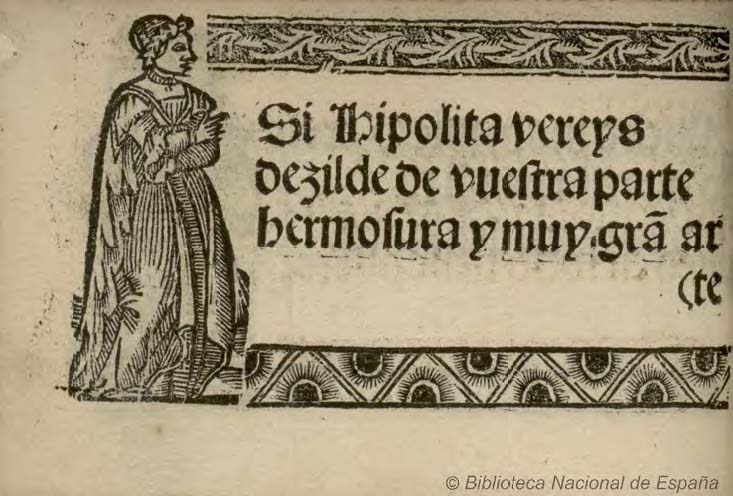 Si Hipolita vereys
dezilde de vueſtra parte
hermoſura y muy grã ar
(te
© Biblioteca Nacional de España